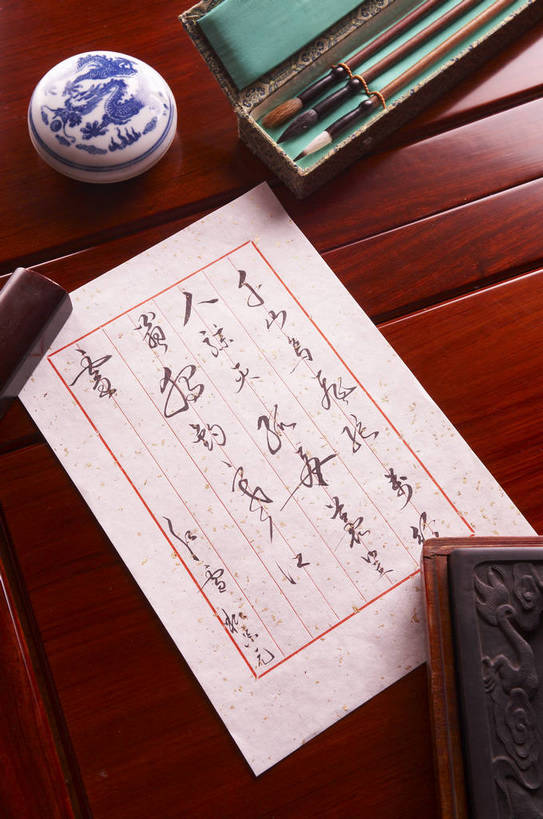 千山鸟飞绝万径
人踪灭孤舟蓑笠
翁独钓寒江
雪 江雪 柳宗元